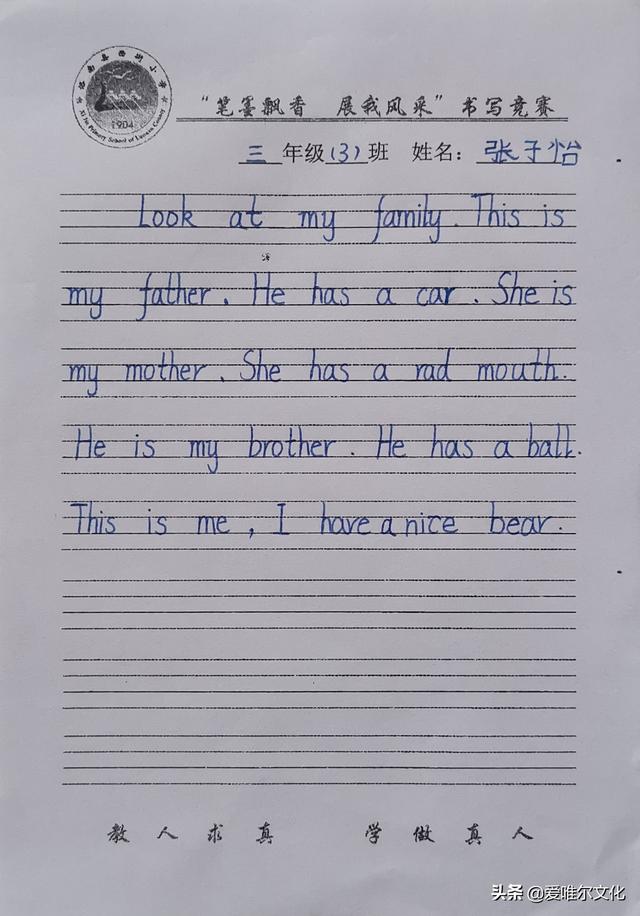 洛南县西湖小学
1904
Xi hu Primary School of Luonan County
“笔墨飘香 展我风采”书写竞赛
三 年级(3)班 姓名：张子怡
Look at my family. This is
my father. He has a car. She is
my mother. She has a rad mouth.
He is my brother. He has a ball.
This is me, I have a nice bear.
教人求真 学做真人
头条 @爱唯尔文化